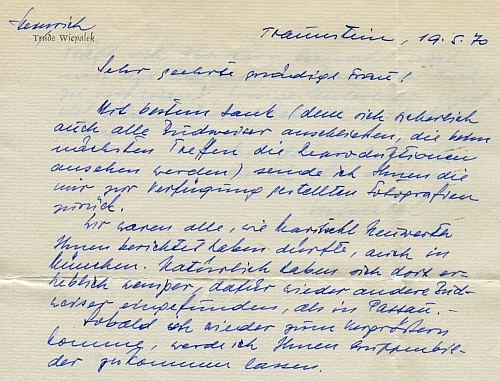 Heinrich
Trude Wiepalek
Traunstein, 19.5.70
Sehr geehrte gnädige Frau!
Mit bestem Dank (dem sich sicherlich
auch alle Budweiser anschliessen, die beim
nächsten Treffen die Reproduktionen
ansehen werden) sende ich Ihnen die
mir zur Verfügung gestellten Fotografien
zurück.
Wir waren alle, wie Neuwerth
Ihnen berichtet haben dürfte, auch in
München. Natürlich haben sich dort er-
heblich weniger, dafür wieder andere Bud-
weiser eingefunden, als in Passau. –
Sobald ich wieder zum Vergrößern
komme, werde ich Ihnen Gruppenbil-
der zukommen lassen.